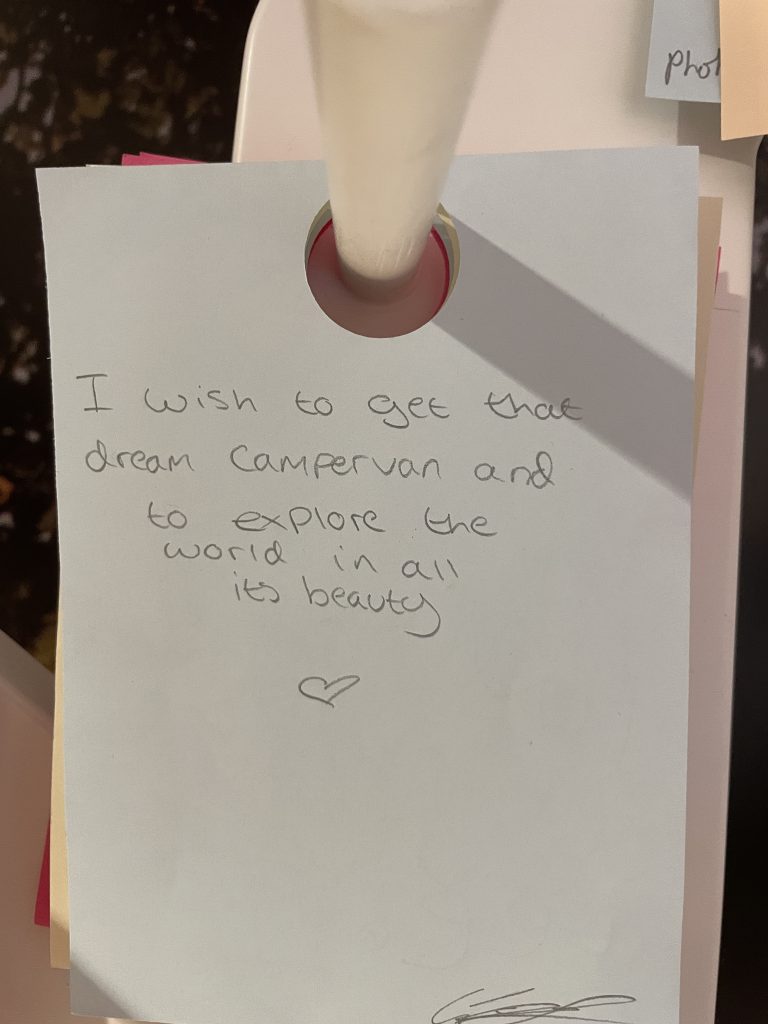 Phot
I wish to get that
dream campervan and
to explore the
world in all
its beauty